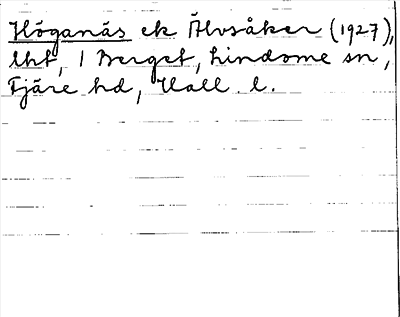 Höganäs ek Älvsåker (1927),
lht, 1 Berget, Lindome sn,
Fjäre hd, Hall. l.